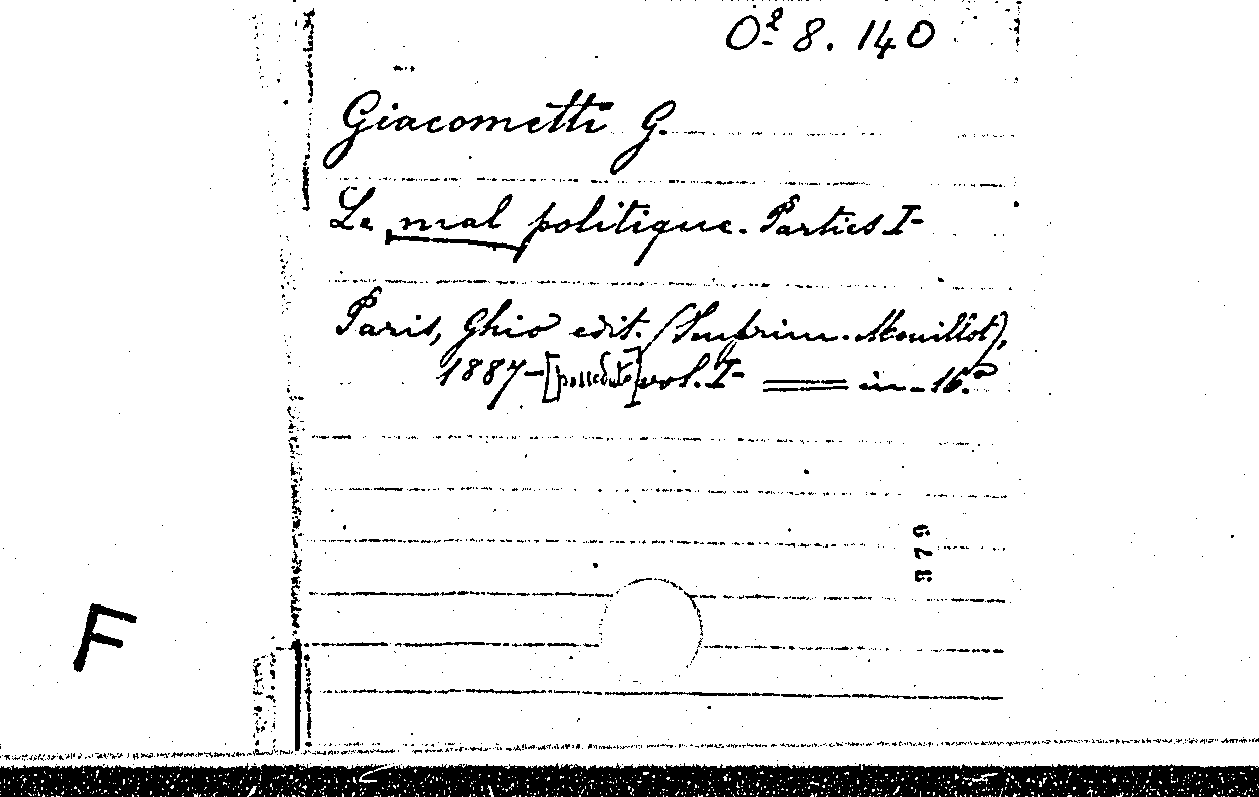 O² 8. 140
Giacometti G.
Le mal politique. Parties I-
Paris, Ghio edit. (Imprim. Mouillot),
1887-[possedute] vol. I- == in-16.°
379
F